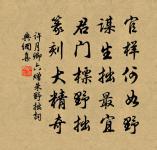 官样何如野
谋生拙最宜
君门标野拙
篆刻大精奇
许月卿六赠朱野拙词
典调集